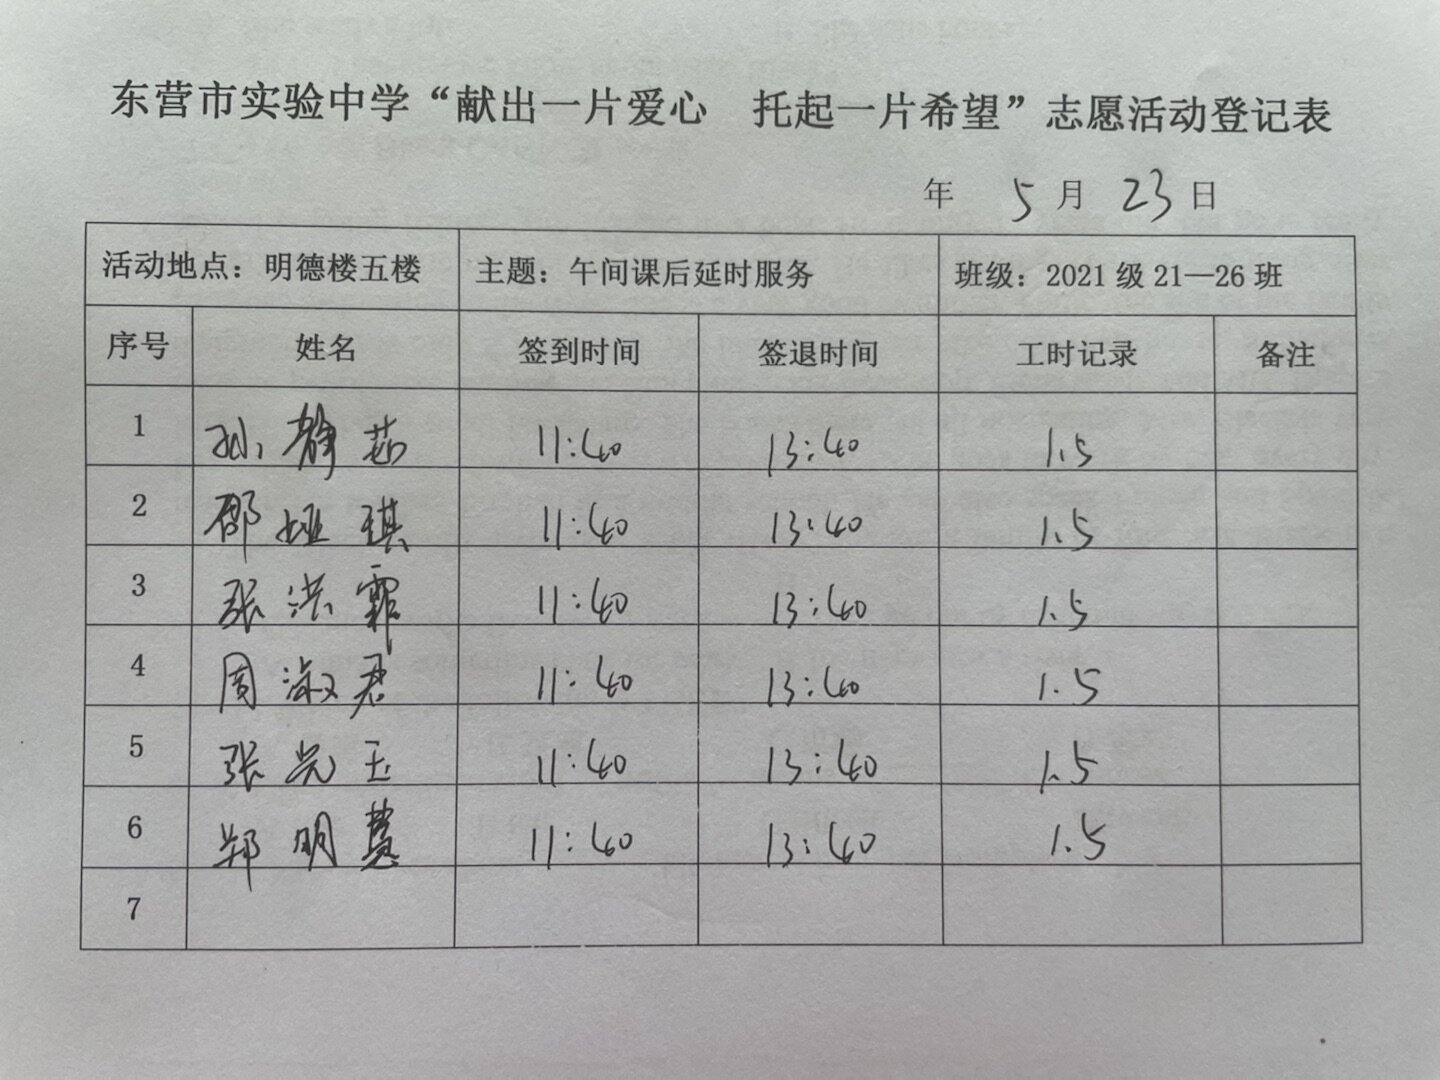 东营市实验中学“献出一片爱心 托起一片希望”志愿活动登记表
年 5 月 23 日
活动地点：明德楼五楼 主题：午间课后延时服务 班级：2021 级 21—26 班
序号 姓名 签到时间 签退时间 工时记录 备注
1 孙静茹 11:40 13:40 1.5
2 邵娅琪 11:40 13:40 1.5
3 张洪霏 11:40 13:40 1.5
4 周淑君 11:40 13:40 1.5
5 张光玉 11:40 13:40 1.5
6 郑明慧 11:40 13:40 1.5
7